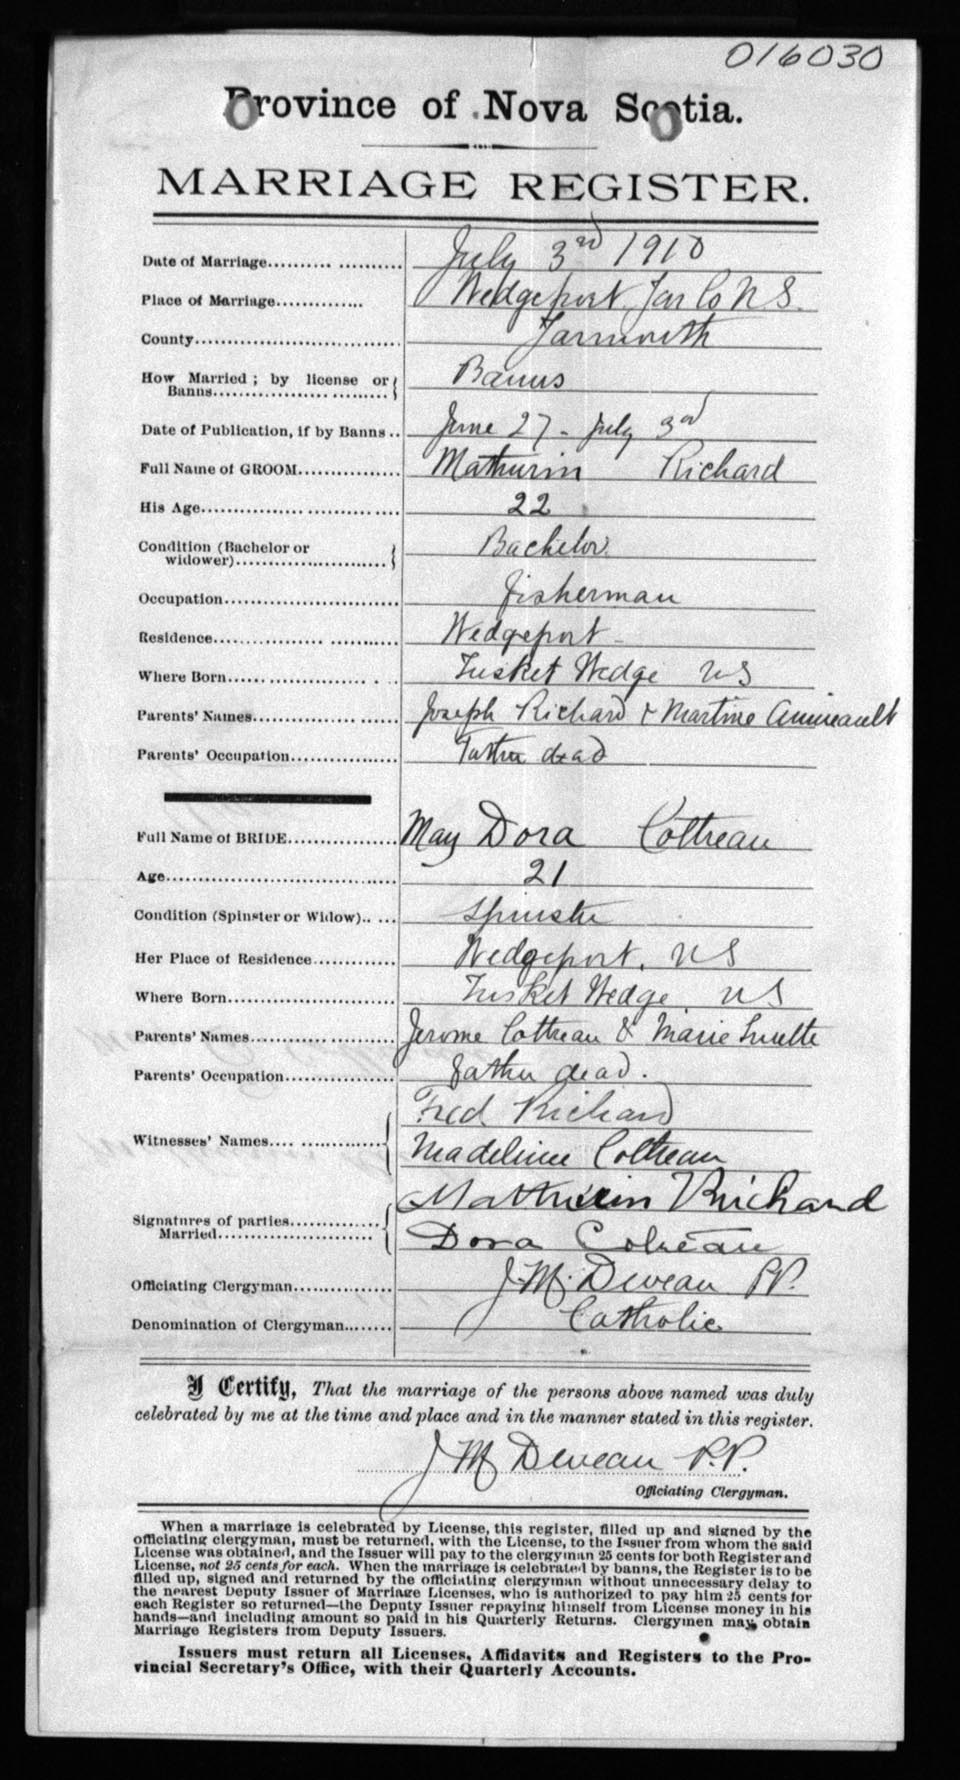 016030
Province of Nova Scotia.
MARRIAGE REGISTER.
Date of Marriage.......... .......... July 3rd 1910
Place of Marriage............. Wedgeport Yar Co N.S.
County............................... Yarmouth
How Married ; by license or Banns
Banns................. .........
Date of Publication, if by Banns .. June 27 - July 3rd
Full Name of GROOM............... Mathurin Richard
His Age................ .......... .... 22
Condition (Bachelor or Bachelor.
widower)......................
Occupation.......................... fisherman
Residence................ .......... Wedgeport -
Where Born...... .............. . .. Tusket Wedge NS
Parents' Names................ ...... Joseph Richard & Martine Amireault
Parents' Occupation................ Father dead
Full Name of BRIDE................ May Dora Cottreau
Age................................... 21
Condition (Spinster or Widow).. ... Spinster
Her Place of Residence............. Wedgeport. NS
Where Born......................... Tusket Wedge NS
Parents' Names............ .......... Jerome Cottreau & Marie
Parents' Occupation................. father dead.
Fred Richard
Witnesses' Names.... ............
Madeline Cottreau
Mathurin Richard
Signatures of parties..............
Married.......................
Dora Cotreau
Officiating Clergyman............... J. M. Deveau P.P.
Denomination of Clergyman....... Catholic
I Certify, That the marriage of the persons above named was duly
celebrated by me at the time and place and in the manner stated in this register.
J M Deveau P.P.
Officiating Clergyman.
When a marriage is celebrated by License, this register, filled up and signed by the
officiating clergyman, must be returned, with the License, to the Issuer from whom the said
License was obtained, and the Issuer will pay to the clergyman 25 cents for both Register and
License, not 25 cents for each. When the marriage is celebrated by banns, the Register is to be
filled up, signed and returned by the officiating clergyman without unnecessary delay to
the nearest Deputy Issuer of Marriage Licenses, who is authorized to pay him 25 cents for
each Register so returned—the Deputy Issuer repaying himself from License money in his
hands—and including amount so paid in his Quarterly Returns. Clergymen may obtain
Marriage Registers from Deputy Issuers.
Issuers must return all Licenses, Affidavits and Registers to the Pro-
vincial Secretary's Office, with their Quarterly Accounts.